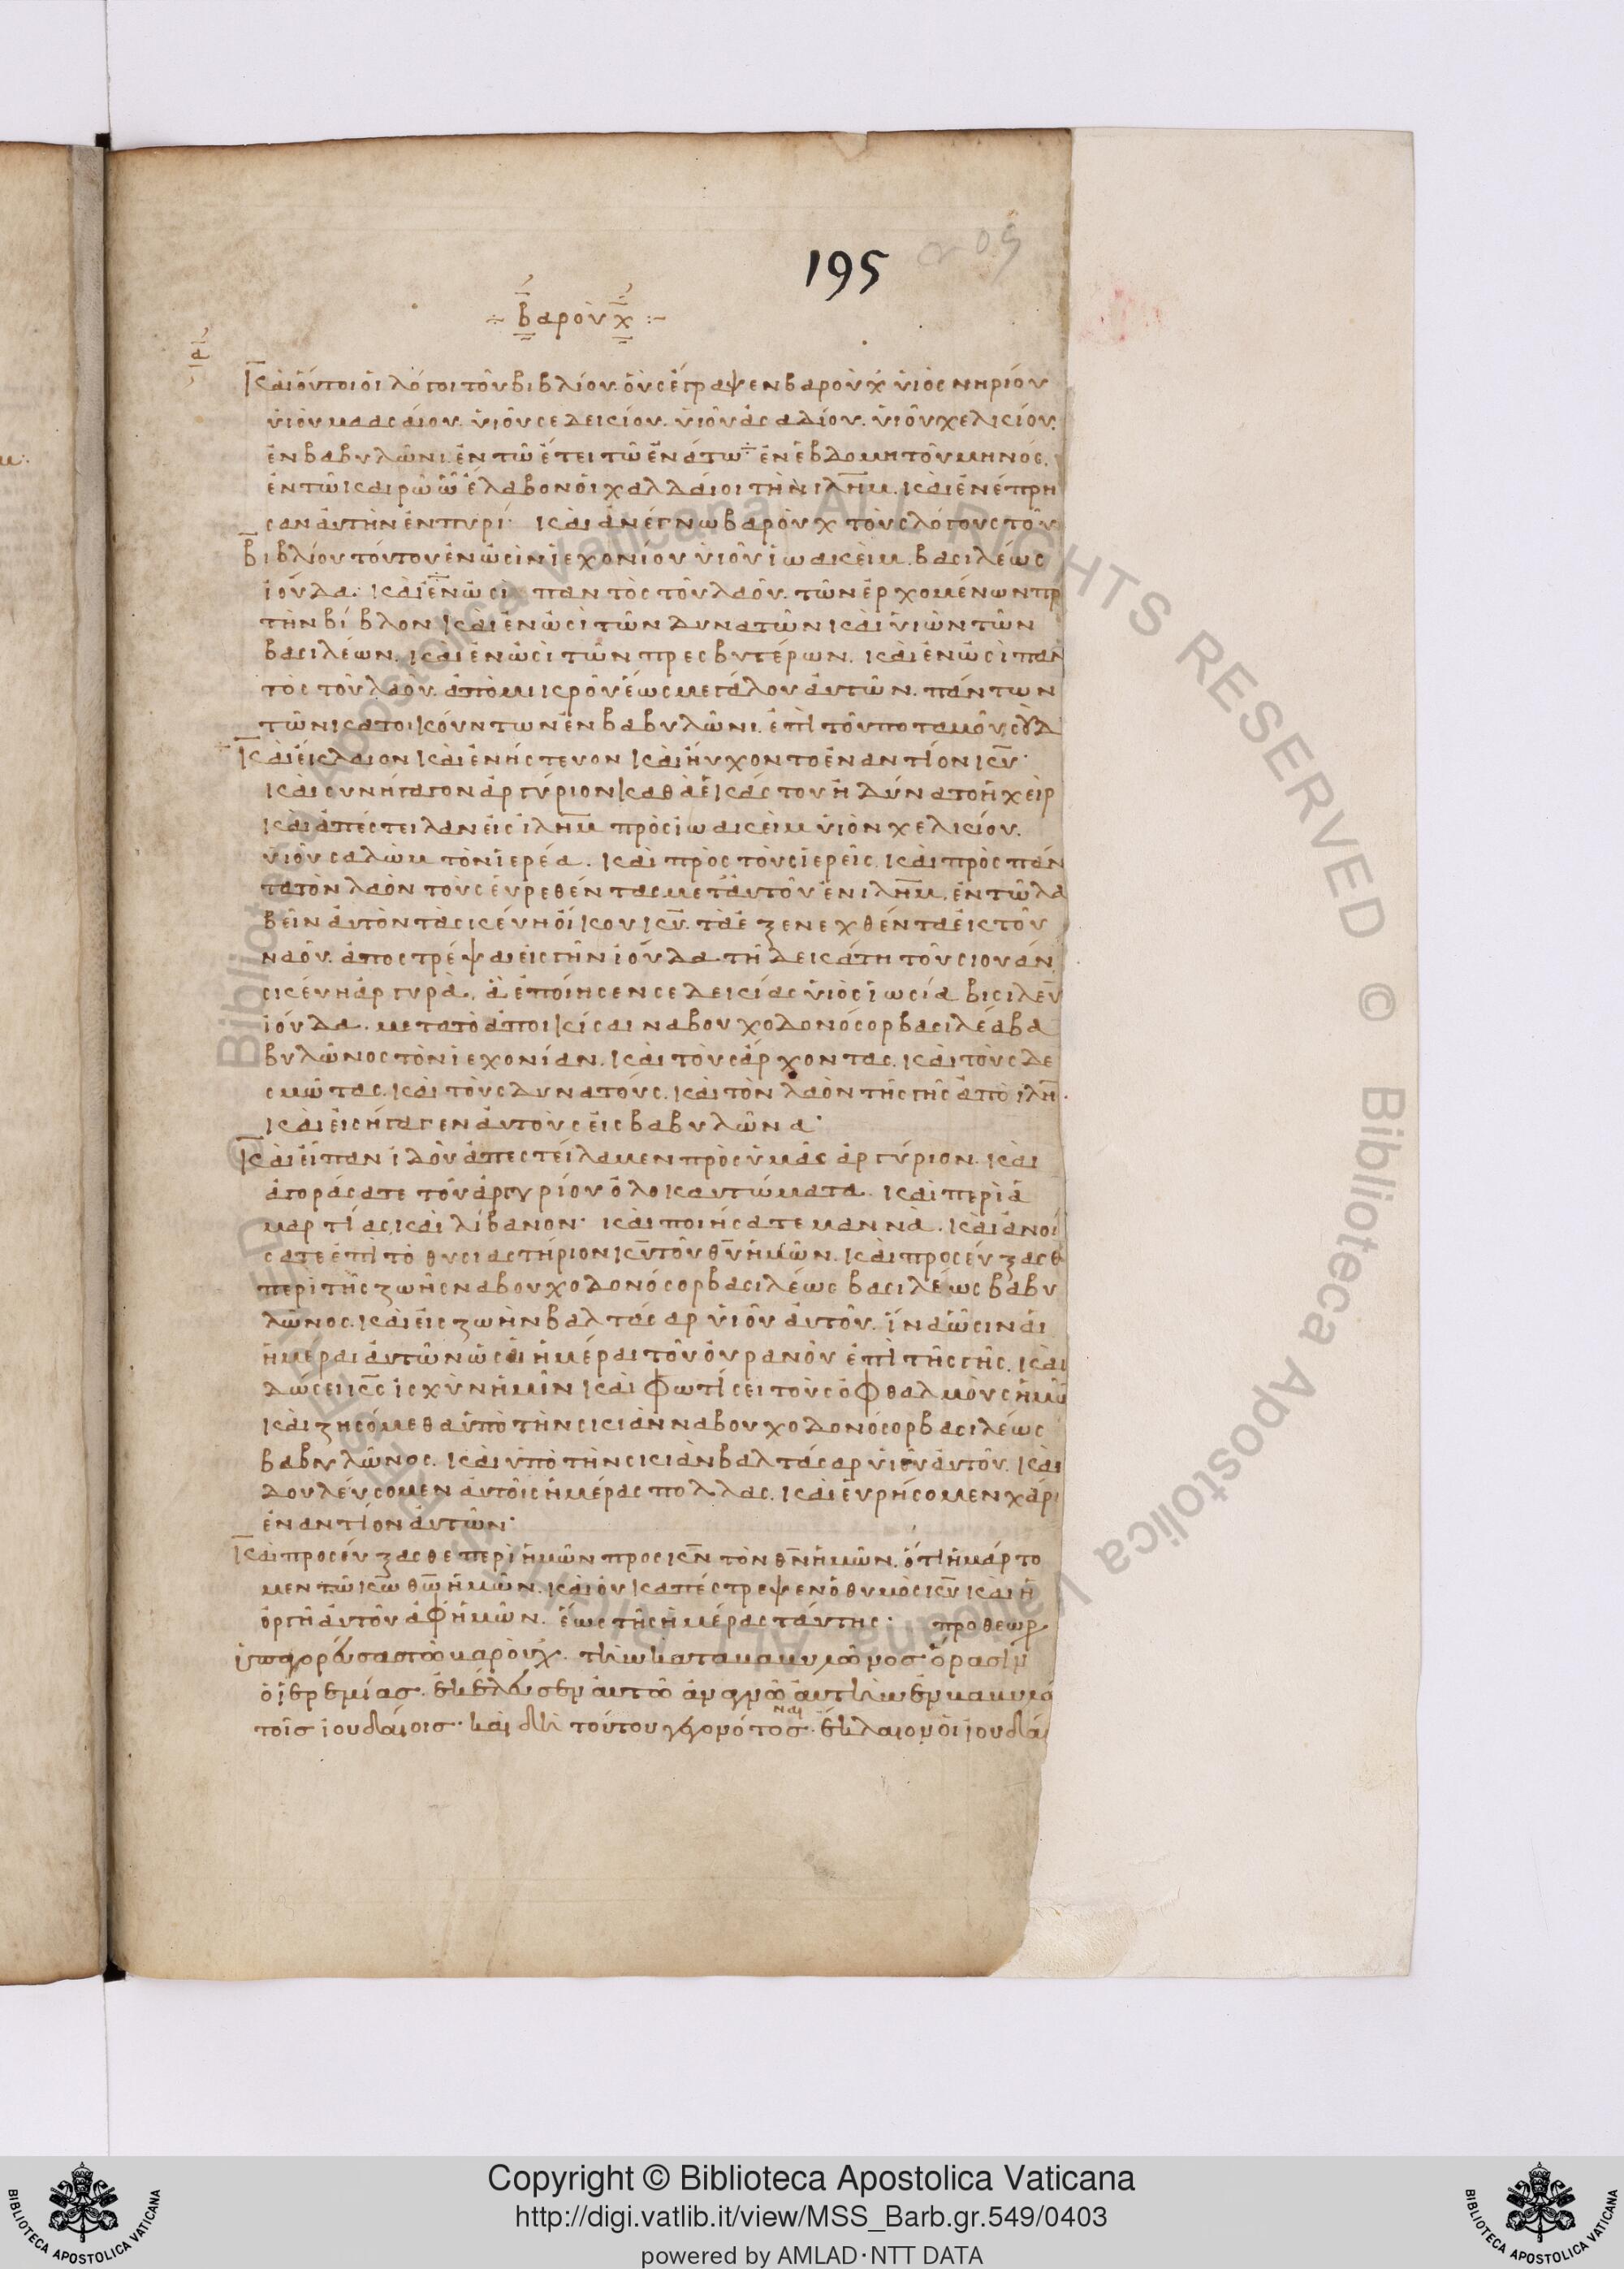 195 205
÷ βαρούχ :~
α
Καὶ οὗτοι οἱ λόγοι τοῦ βιβλίου. οὓς ἔγραψεν βαροὺχ υἱὸς νηρίου
υἱοῦ μαασαίου. υἱοῦ σεδεκίου. υἱοῦ ἀσαδίου. υἱοῦ χελκίου.
ἐν βαβυλῶνι. ἐν τῶ ἔτει τῶ ἐνάτω ÷ ἐν ἑβδόμη τοῦ μηνός.
ἐν τῶ καιρῶ ὧ ἔλαβον οἱ χαλδαῖοι τὴν ιλημ. καὶ ἐνέπρη
σαν αὐτὴν ἐν πυρί· καὶ ἀνέγνω βαροὺχ τοὺς λόγους τοῦ
βιβλίου τούτου ἐν ὠσὶν ἰεχονίου υἱοῦ ἰωακεὶμ. βασιλέως
ἰούδα· καὶ ἐν ὠσὶ παντὸς τοῦ λαοῦ. τῶν ἐρχομένων πρ
τὴν βίβλον καὶ ἐν ὠσὶ τῶν δυνατῶν καὶ υἱῶν τῶν
βασιλέων. καὶ ἐν ὠσὶ τῶν πρεσβυτέρων. καὶ ἐν ὠσὶ παν
τὸς τοῦ λαοῦ. ἀπὸ μικροῦ ἕως μεγάλου αὐτῶν. πάντων
τῶν κατοικούντων ἐν βαβυλῶνι. ἐπὶ τοῦ ποταμοῦ σουδ
Καὶ ἔκλαιον καὶ ἐνήστευον καὶ ηὔχοντο ἐναντίον κυ·
καὶ συνήγαγον ἀργύριον καθὰ ἑκάστου ἠδύνατο ἡ χεὶρ
καὶ ἀπέστειλαν εἰς ιλημ πρὸς ἰωακεὶμ υἱὸν χελκίου.
υἱοῦ σαλὼμ τὸν ἱερέα. καὶ πρὸς τοὺς ἱερεῖς. καὶ πρὸς πάν
τα τὸν λαὸν τοὺς εὑρεθέντας μετ' αὐτοῦ ἐν ιλημ. ἐν τῶ λα
βεῖν αὐτὸν τὰ σκεύη οἴκου κυ. τὰ ἐξενεχθέντα ἐκ τοῦ
ναοῦ. ἀποστρέψαι εἰς γῆν ἰούδα τῆ δεκάτη τοῦ σιουάν.
σκεύη ἀργυρᾶ. ἃ ἐποίησεν σεδεκίας υἱὸς ἰωσία βασιλευ
ἰούδα. μετὰ τὸ ἀποικίσαι ναβουχοδονόσορ βασιλέα βα
βυλῶνος τὸν ἰεχονίαν. καὶ τοὺς ἄρχοντας. καὶ τοὺς δε
σμώτας. καὶ τοὺς δυνατούς. καὶ τὸν λαὸν τῆς γῆς ἀπὸ ιλη.
καὶ εἰσήγαγεν αὐτοὺς εἰς βαβυλῶνα·
Καὶ εἶπαν ἰδοὺ ἀπεστείλαμεν πρὸς ὑμᾶς ἀργύριον. καὶ
ἀγοράσατε τοῦ ἀργυρίου ὁλοκαυτώματα. καὶ περὶ ἁ
μαρτίας καὶ λίβανον· καὶ ποιήσατε μαννὰ. καὶ ἀνοί
σατε ἐπὶ τὸ θυσιαστήριον κυ τοῦ θυ ἡμῶν. καὶ προσεύξασθ
περὶ τῆς ζωῆς ναβουχοδονόσορ βασιλέως βασιλέως βαβυ
λῶνος. καὶ εἰς ζωὴν βαλτάσαρ υἱοῦ αὐτοῦ. ἵνα ὦσιν αἱ
ἡμέραι αὐτῶν ὡς αἱ ἡμέραι τοῦ οὐρανοῦ ἐπὶ τῆς γῆς. καὶ
δώσει κς ἰσχὺν ἡμῖν καὶ φωτίσει τοὺς ὀφθαλμοὺς ἡμῶ
καὶ ζησόμεθα ὑπὸ τὴν σκιὰν ναβουχοδονόσορ βασιλέως
βαβυλῶνος. καὶ ὑπὸ τὴν σκιὰν βαλτάσαρ υἱοῦ αὐτοῦ. καὶ
δουλεύσομεν αὐτοῖς ἡμέρας πολλας. καὶ εὑρήσομεν χάρι
ἐναντίον αὐτῶν·
Καὶ προσεύξασθε περὶ ἡμῶν προς κν τὸν θν ἡμῶν. ὅτι ἡμάρτο
μεν τῶ κω θω ἡμῶν. καὶ οὐκ απέστρεψεν ὁ θυμὸς κυ καὶ ἡ
ὀργὴ αὐτοῦ ἀφ' ἡμῶν. ἕως τῆς ἡμέρας ταύτης· προθεωρ
ὑπαγορεύσας τῶ βαροὺχ. τὴν κατα βαβυλῶνος ὅρασιν
ὁ ἰερεμίας. ἐκέλευσεν αὐτῶ ἀναγνῶ αὐτὴν ἐν βαβυλῶ
τοῖς ἰουδαίοις· καὶ δὴ τούτου γεγονότος. ἔκλαιον οἱ ἰουδαί